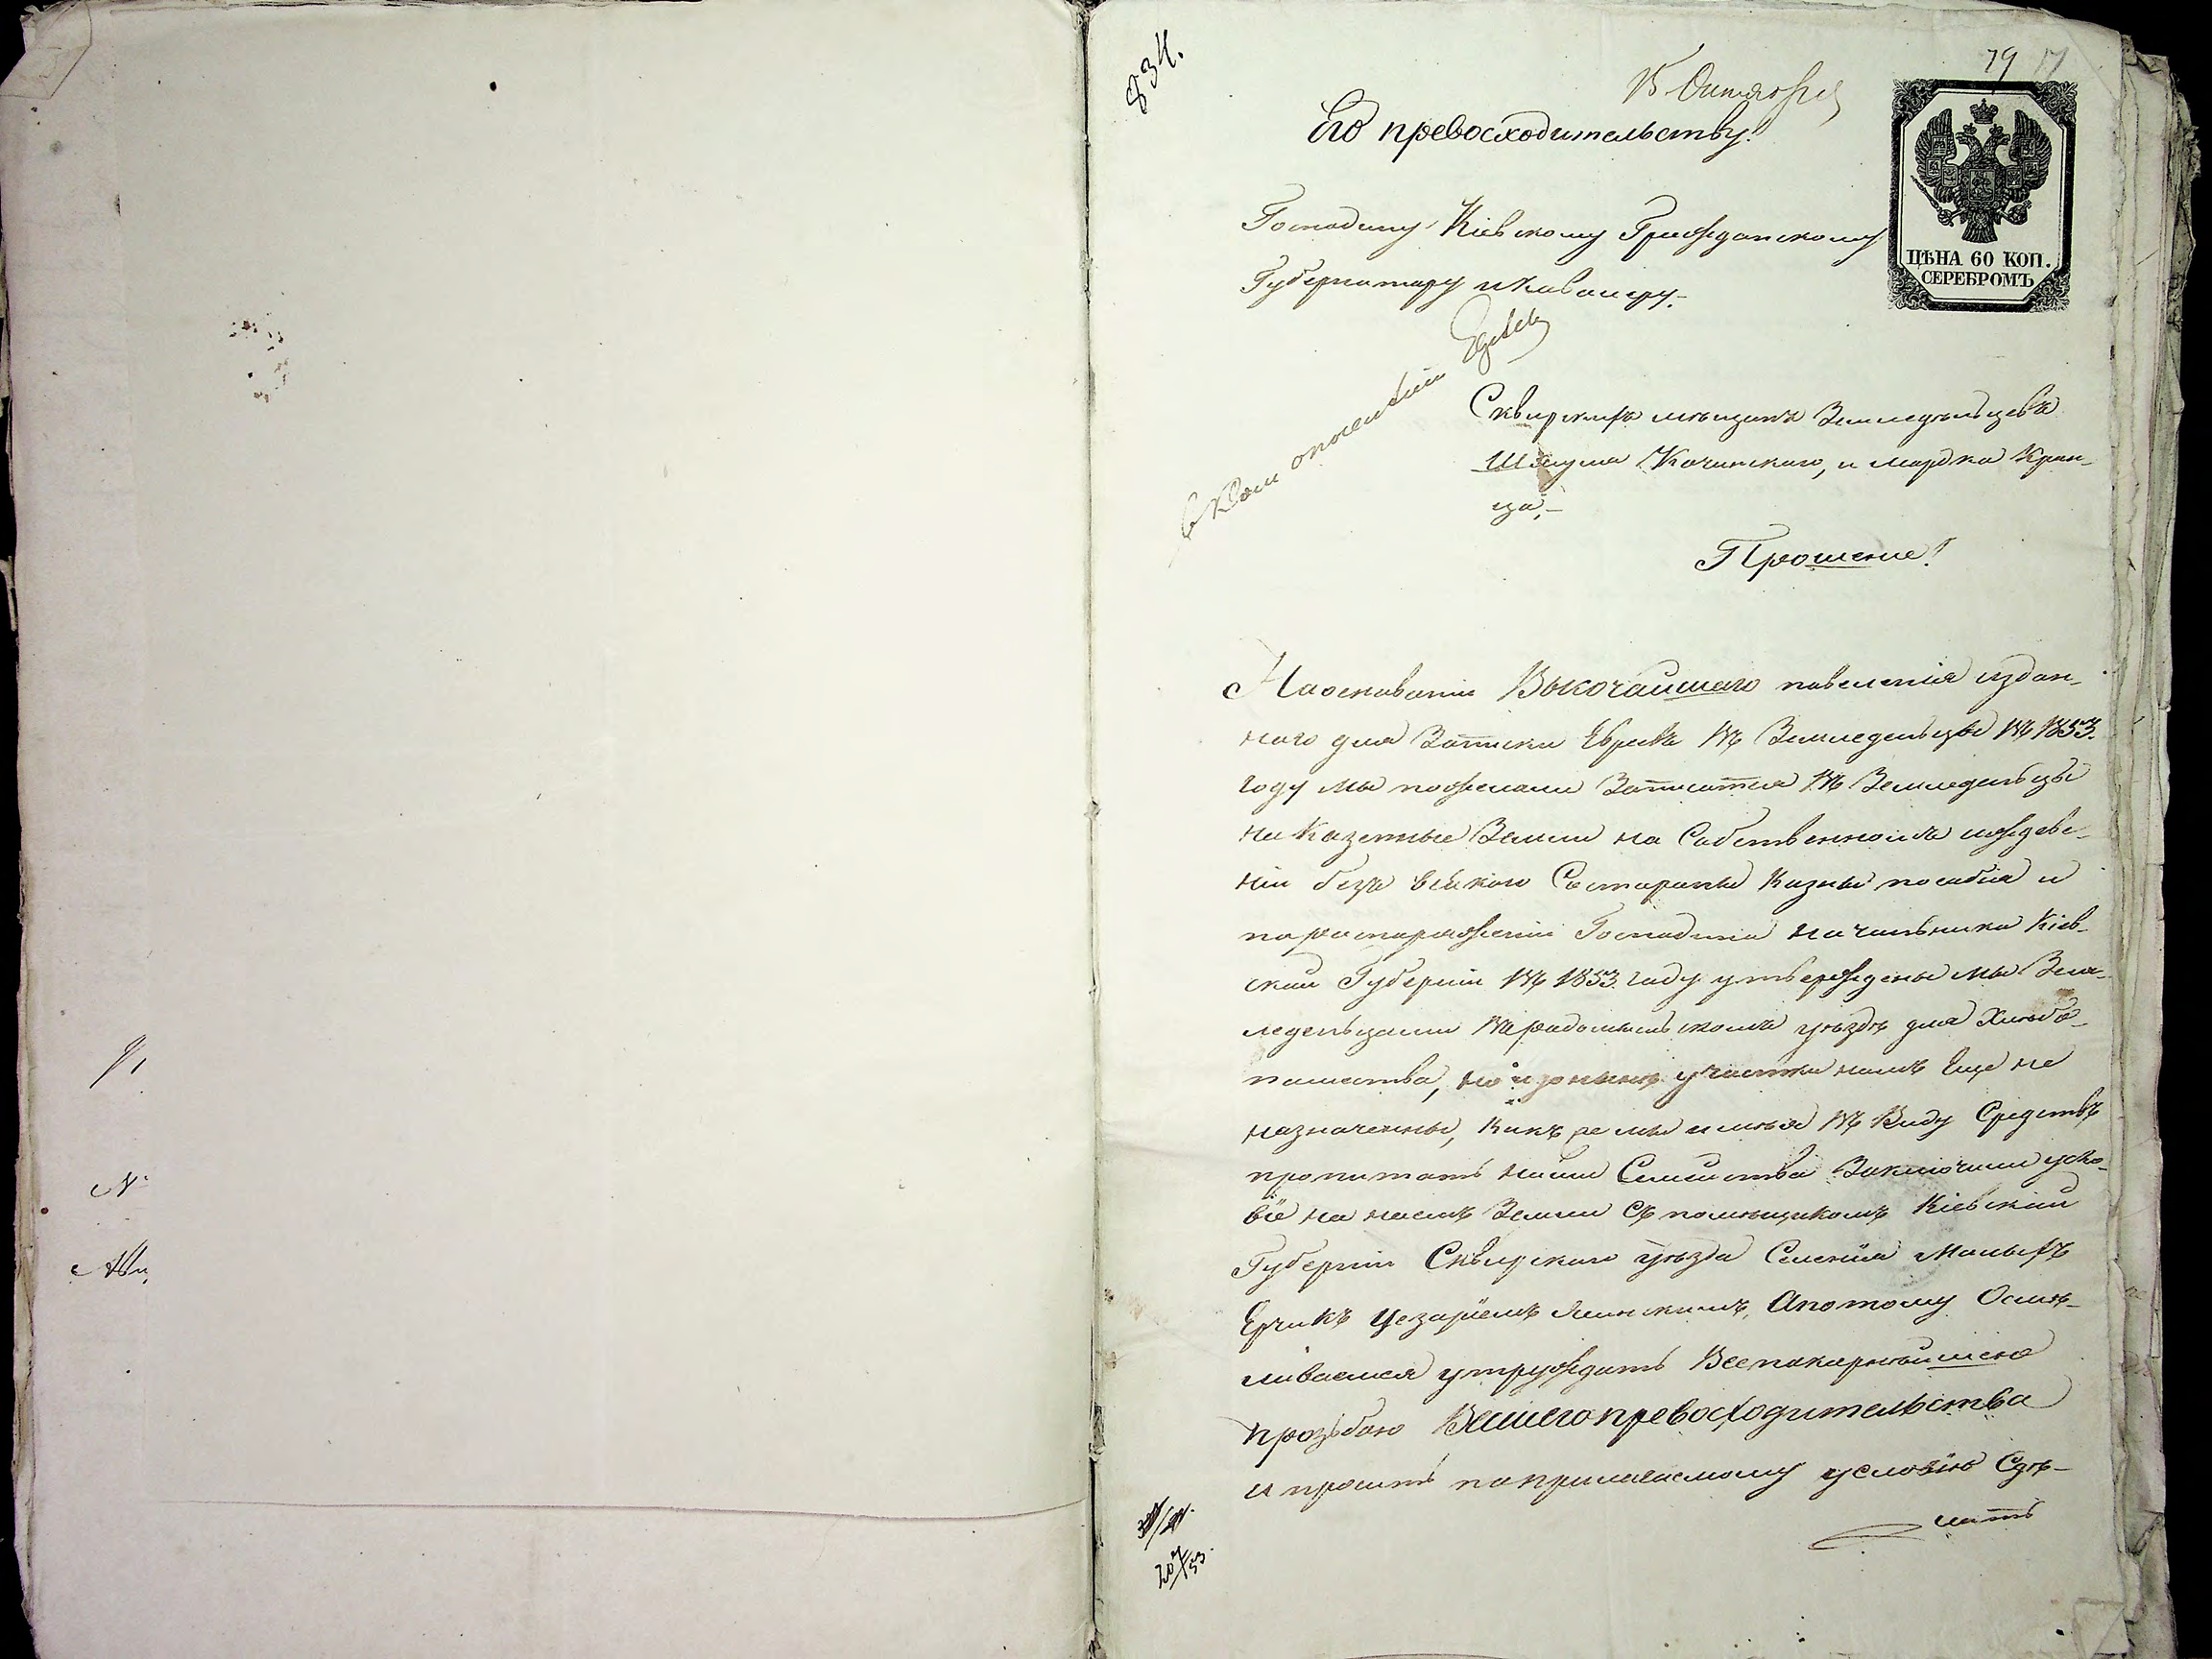 834.
79 17
15 Октября
Его превосходительству!
Господину Кіевскому Гражданскому
Губернатору и Кавалеру.
ЦѢНА 60 КОП.
СЕРЕБРОМЪ
Сквирскихъ мѣщанъ Земледѣльцевъ
Шлума Кочинскаго, и мордка Кран-
ца,-
Прошеніе!
На основаніи Высочайшаго повеленія издан-
наго для Записки Евреевъ въ Земледельцы въ 1853.
году мы пожелали Записатся въ Земледельцы
на Казенные Земли на Собственномъ иждеве-
ніи безъ всякого Состороны Казны пособія и
по распоряженіи Господина начальника Кіев-
ской Губерніи въ 1853 году утверждены мы Зем-
ледельцами въ радомысльскомъ уѣзде для Хлѣбо-
пашества, но и донынѣ участки намъ Еще не
назначенны, какъ же мы имѣя въ Виду Средствъ
пропитать наши Семейства Заключили усло-
віе на наемъ Земли съ помещикомъ Кіевской
Губерніи Сквирскаго уѣзда Селенія Малыхъ
Ерчикъ Цезаріемъ Ялинскимъ, Апотому Осмѣ-
ливаемся утруждать Всепокорнѣйшею
прозьбою Вашего превосходительства
и просить поприлагаемому условію Сдѣ-
лать
207/53.